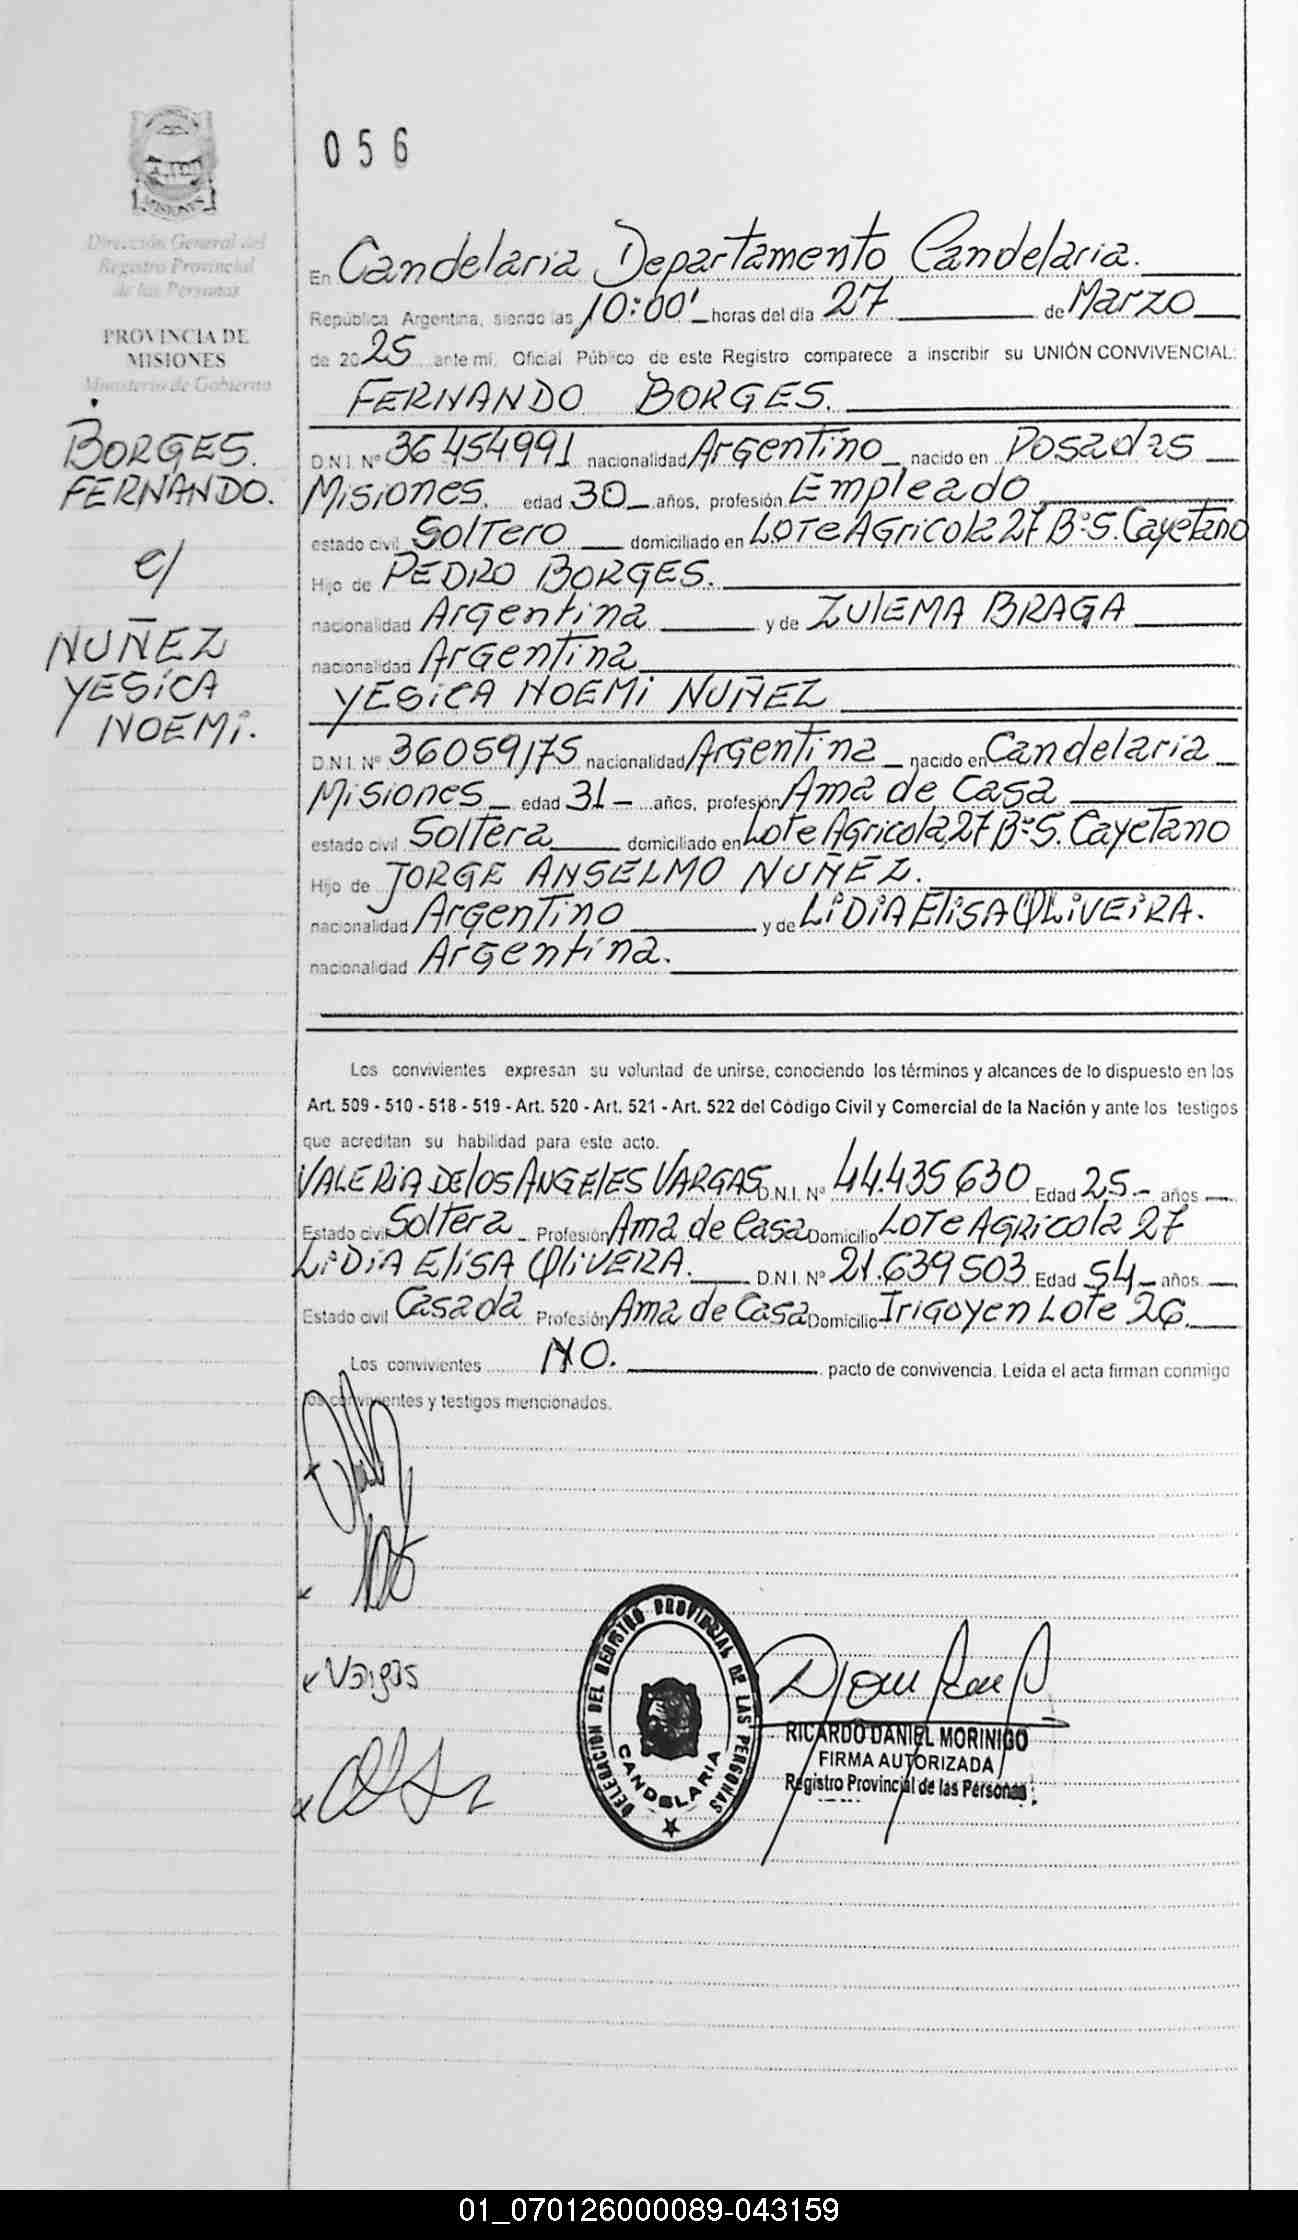 MISIONES
Dirección General del
Registro Provincial
de las Personas
PROVINCIA DE
MISIONES
Ministerio de Gobierno
BORGES.
FERNANDO.
c/
NUÑEZ
YESiCA
NOEMi.
056
En Candelaria Departamento Candelaria.
República Argentina, siendo las 10:00' horas del día 27 de Marzo
de 2025 ante mi, Oficial Público de este Registro comparece a inscribir su UNIÓN CONVIVENCIAL:
FERNANDO BORGES.
D.N.I. Nº 36454991 nacionalidad Argentino nacido en Posadas
Misiones. edad 30 años, profesión Empleado
estado civil Soltero domiciliado en Lote Agricola 27 Bº S. Cayetano
Hijo de PEDRO BORGES.
nacionalidad Argentina y de ZULEMA BRAGA
nacionalidad Argentina
YESiCA NOEMi NUÑEZ
D.N.I. Nº 36059175 nacionalidad Argentina nacido en Candelaria
Misiones edad 31 años, profesión Ama de Casa
estado civil Soltera domiciliado en Lote Agricola 27 Bº S. Cayetano
Hijo de JORGE ANSELMO NUÑEZ.
nacionalidad Argentino y de LiDiA ELiSA OLiVEiRA.
nacionalidad Argentina.
Los convivientes expresan su voluntad de unirse, conociendo los términos y alcances de lo dispuesto en los
Art. 509 - 510 - 518 - 519 - Art. 520 - Art. 521 - Art. 522 del Código Civil y Comercial de la Nación y ante los testigos
que acreditan su habilidad para este acto.
VALERiA DE los ANGELES VARGAS D.N.I. Nº 44.435630 Edad 25.- años
Estado civil Soltera Profesión Ama de Casa Domicilio Lote Agricola 27
LiDiA ELiSA OLiVERA. D.N.I. Nº 21.639503 Edad 54 años
Estado civil Casada Profesión Ama de Casa Domicilio Irigoyen Lote 26.
Los convivientes NO. pacto de convivencia. Leida el acta firman conmigo
los convivientes y testigos mencionados.
x Vargas
DELEGACION DEL REGISTRO PROVINCIAL DE LAS PERSONAS
CANDELARIA
RICARDO DANIEL MORINIGO
FIRMA AUTORIZADA
Registro Provincial de las Personas
01_070126000089-043159